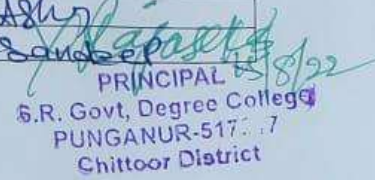 Ashu
Sandeep
15/8/22
PRINCIPAL
S.R. Govt, Degree College
PUNGANUR-517
Chittoor District